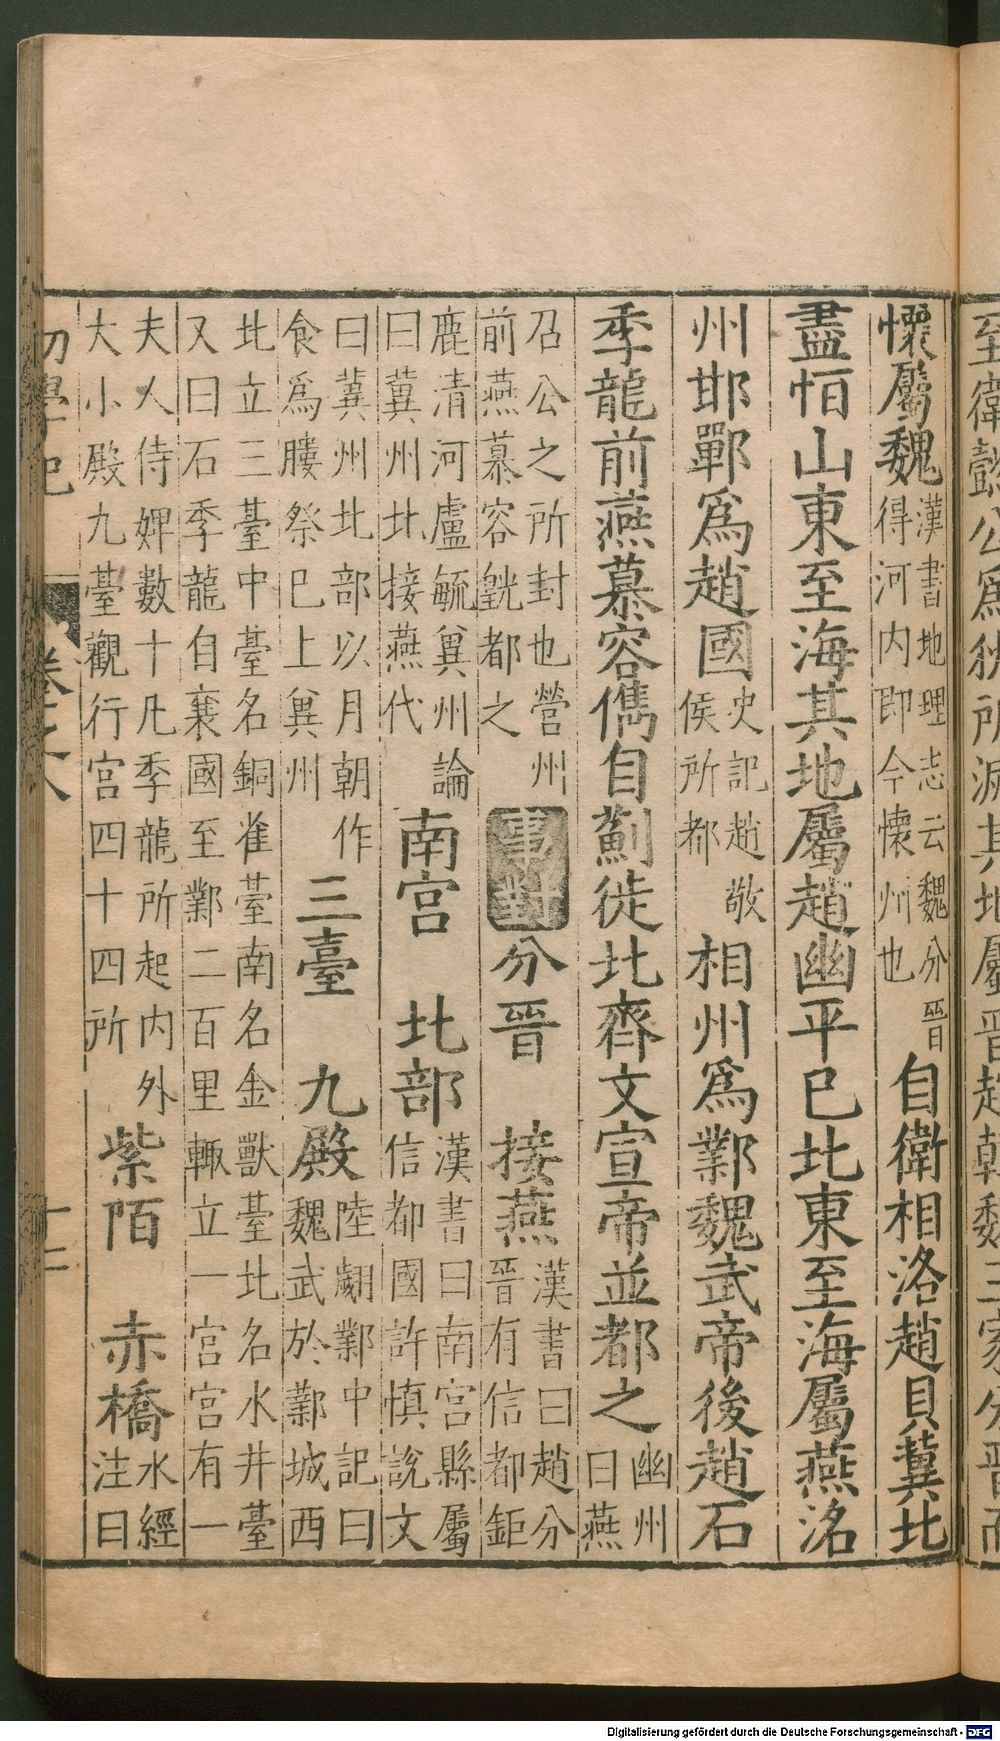 至衛懿公爲狄所滅其地屬晉趙韓魏三家分晉而
懷屬魏漢書地理志云魏分晉得河内即今懷州也自衛相洛趙貝冀北
盡恒山東至海其地屬趙幽平已北東至海屬燕洺
州邯鄲爲趙國史記趙敬侯所都相州爲鄴魏武帝後趙石
季龍前燕慕容儁自薊徙北齊文宣帝並都之幽州曰燕
召公之所封也營州前燕慕容皝都之事對分晉 接燕漢書曰趙分晉有信都鉅
鹿清河盧毓兾州論曰冀州北接燕代南宮 北部漢書曰南宮縣屬信都國許慎說文
曰冀州北部以月朝作食爲膢祭巳上兾州三臺 九殿陸翽鄴中記曰魏武於鄴城西
北立三臺中臺名銅雀臺南名金獸臺北名水井臺又曰石季龍自襄國至鄴二百里輙立一宮宮有一
夫人侍婢數十凡季龍所起内外大小殿九臺觀行宮四十四所紫陌 赤橋水經注曰
初學記 卷之八 十二
Digitalisierung gefördert durch die Deutsche Forschungsgemeinschaft - DFG